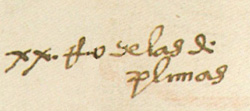 xx. delas de
plumas